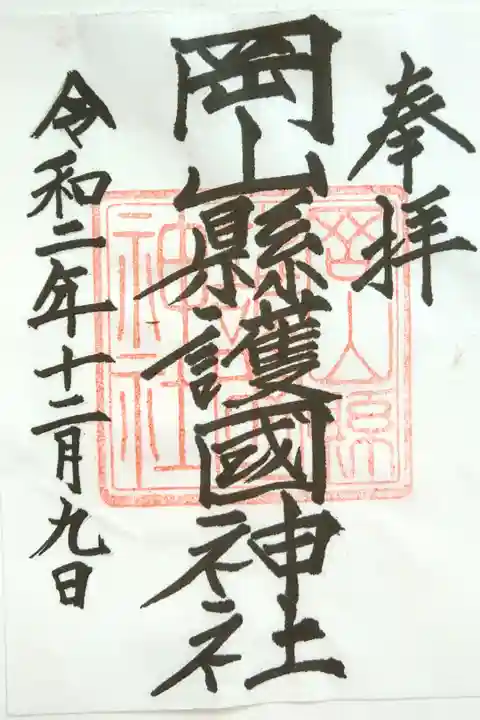 奉拝
岡山縣護國神社
令和二年十二月九日
岡山県
神社